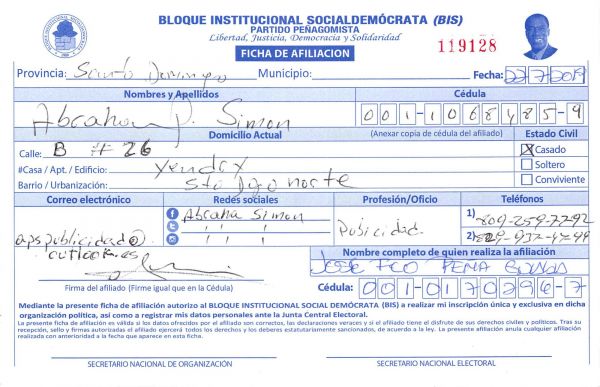 BLOQUE INSTITUCIONAL SOCIALDEMÓCRATA (BIS)
PARTIDO PEÑAGOMISTA
Libertad, Justicia, Democracia y Solidaridad
FICHA DE AFILIACION
119128
Provincia: Santo Domingo Municipio: Fecha: 22/7/2019
Nombres y Apellidos Cédula
Abraham P. Simon 001-1068485-9
Domicilio Actual (Anexar copia de cédula del afiliado) Estado Civil
Calle: B # 26 X Casado
#Casa / Apt. / Edificio: Soltero
Barrio / Urbanización: Sto Dgo norte Conviviente
Correo electrónico Redes sociales Profesión/Oficio Teléfonos
apspublicidad@ Simon Publicidad 1) 809-259-7292
outlook.es 2)
Nombre completo de quien realiza la afiliación
Jose Fco Peña
Firma del afiliado (Firme igual que en la Cédula) Cédula: 001-0170296-7
Mediante la presente ficha de afiliación autorizo al BLOQUE INSTITUCIONAL SOCIAL DEMÓCRATA (BIS) a realizar mi inscripción única y exclusiva en dicha
organización política, así como a registrar mis datos personales ante la Junta Central Electoral.
La presente ficha de afiliación es válida si los datos ofrecidos por el afiliado son correctos, las declaraciones veraces y si el afiliado tiene el disfrute de sus derechos civiles y políticos. Tras su
recepción, sello y firmas autorizadas el afiliado ejercerá todos los derechos y los deberes estatutariamente sancionados, de acuerdo a la ley. La presente afiliación anula cualquier afiliación
realizada con anterioridad a la fecha que aparece en esta ficha.
SECRETARIO NACIONAL DE ORGANIZACIÓN SECRETARIO NACIONAL ELECTORAL